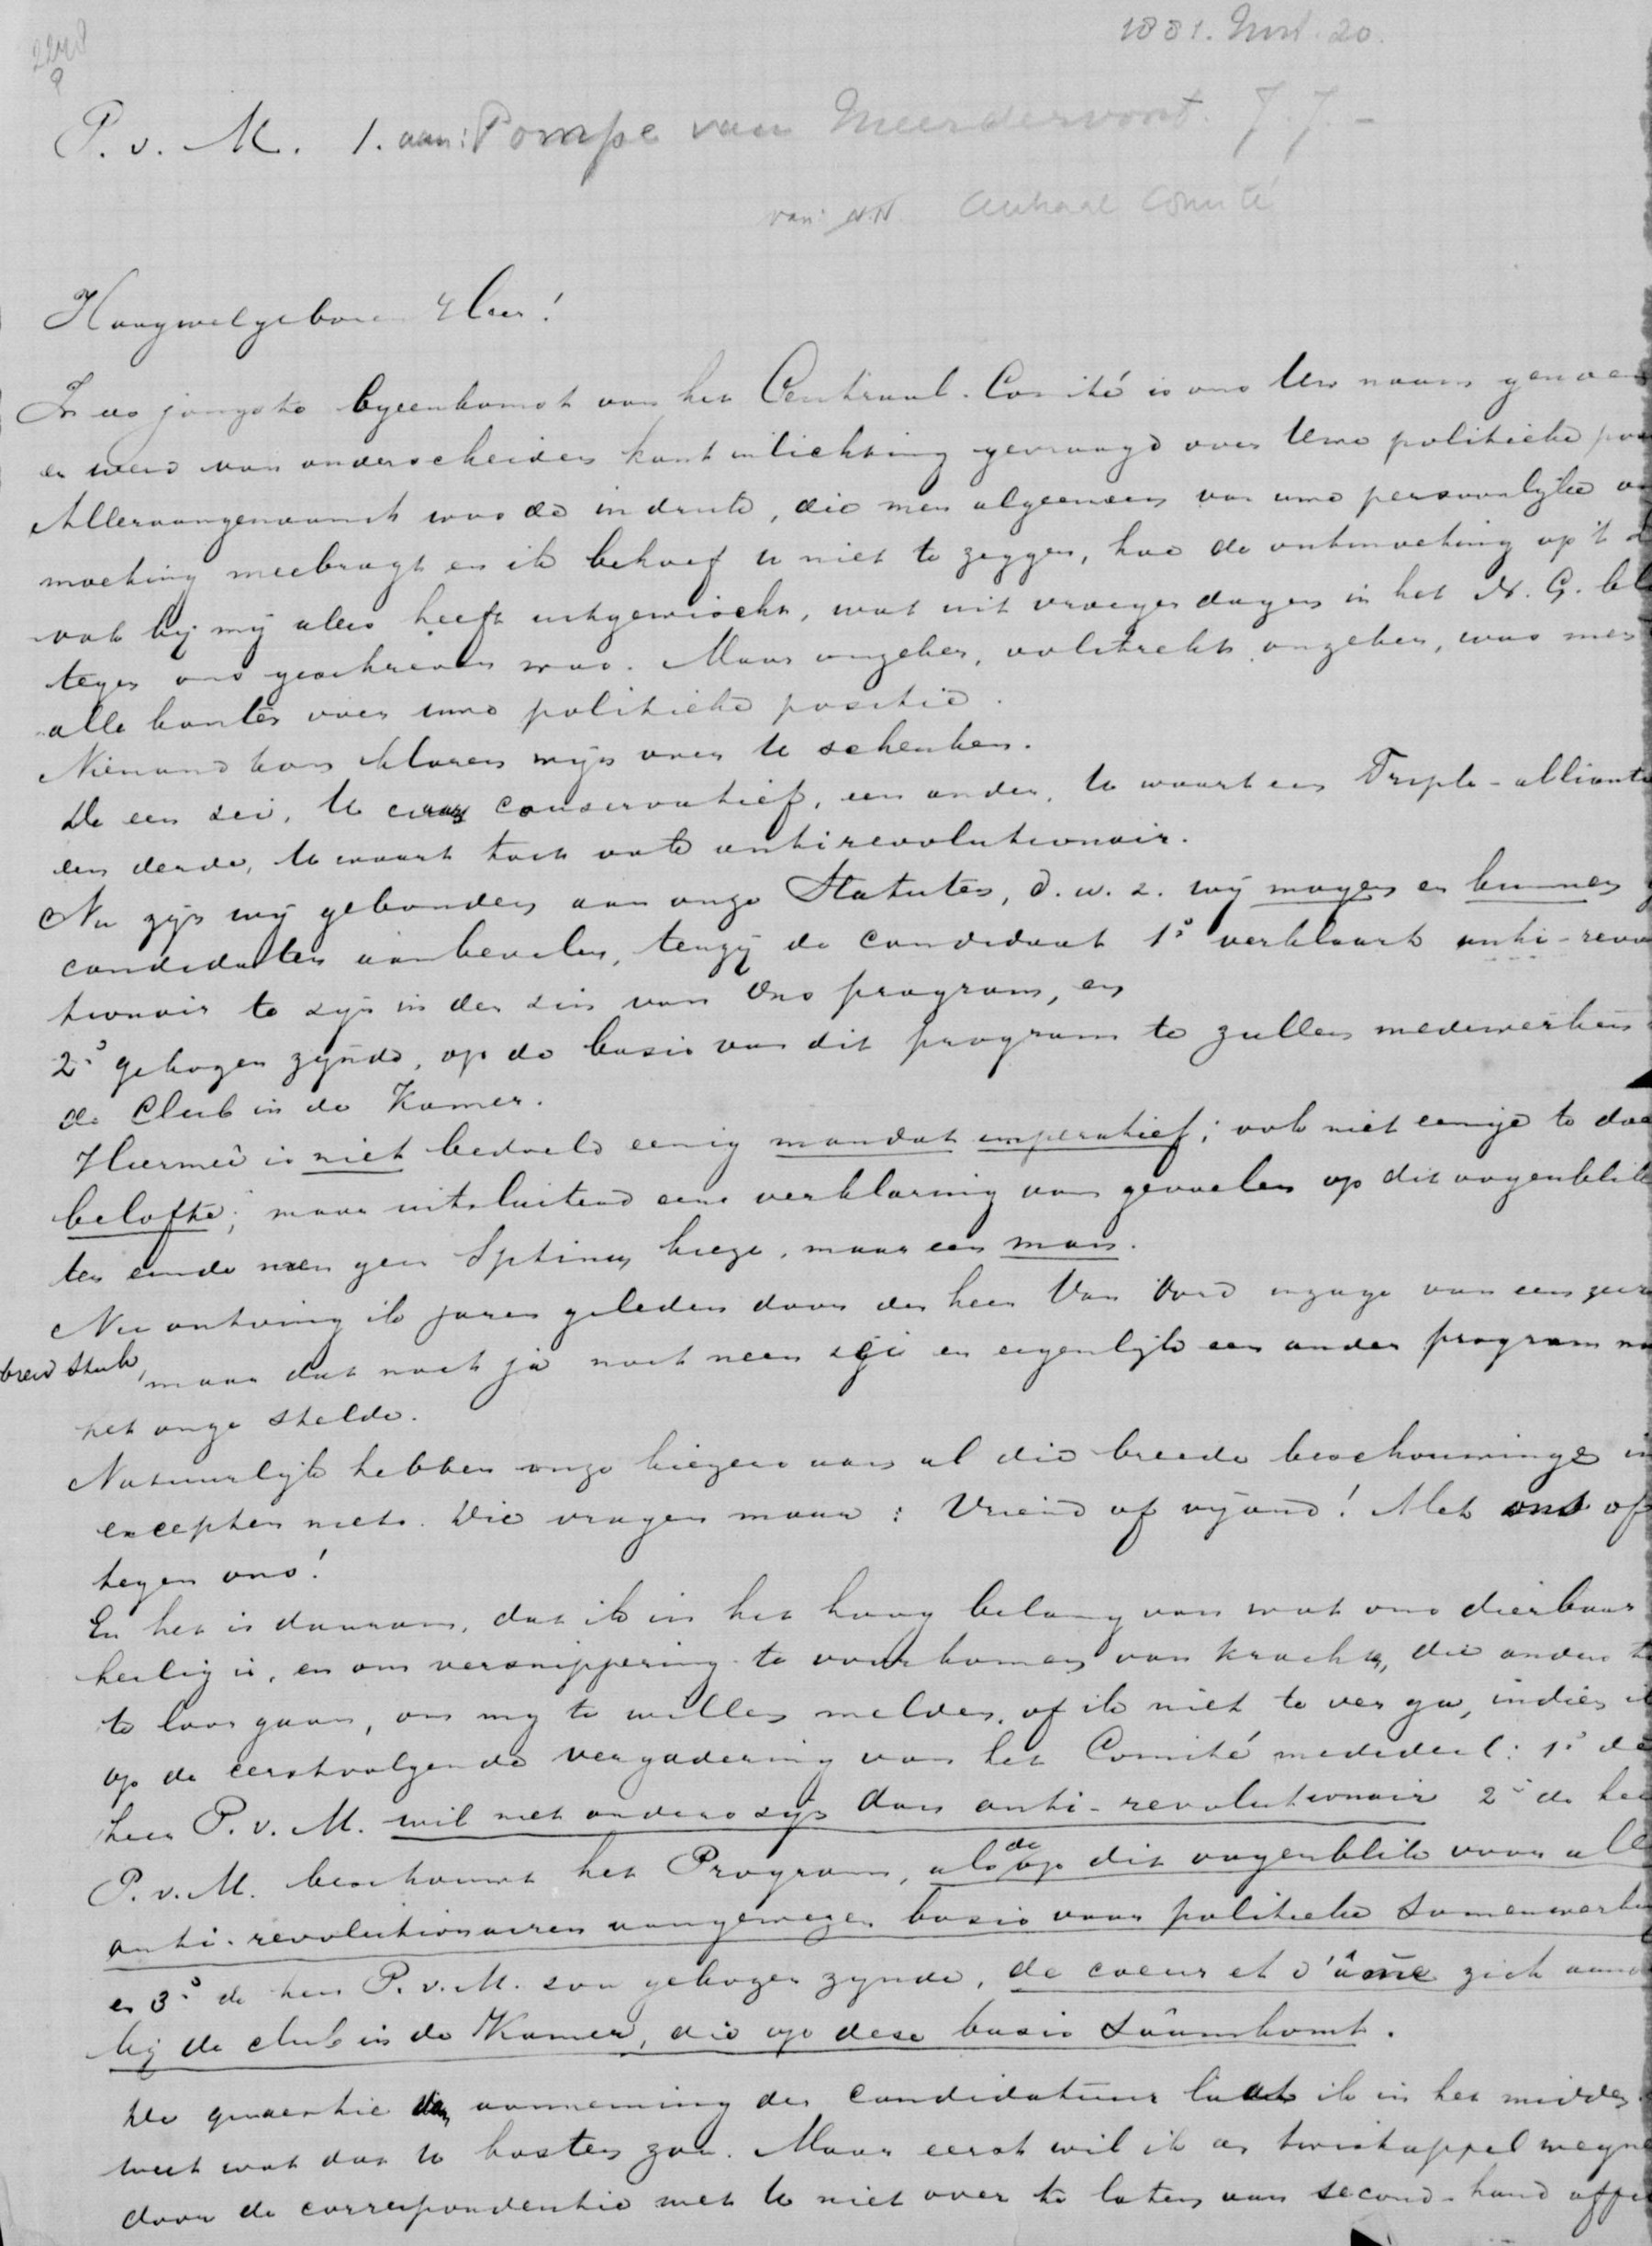 2248
1881. Nov. 20.
P. v. M. 1. aan: Pompe van Meerdervoort. J. J. -
van: Centraal Comité
Hoogwelgeboren Heer!
In de jongste byeenkomst van het Centraal-Comité is ons Uw naam genoem
er werd van onderscheiden kant inlichting gevraagd over Uwe politieke po
Alleraangenaamst was de indruk, die men algemeen van uwe persoonlyke o
moeting meebragt en ik behoef U niet te zeggen, hoe de ontmoeting op 't
ook bij mij alles heeft uitgewischt, wat uit vroeger dagen in het N. G. bl
tegen ons geschreven was. Maar onzeker, volstrekt onzeker, was men
alle kanten over uwe politieke positie.
Niemand kon klaren wijn over U schenken.
De een zei, U waart conservatief, een ander, U waart een Triple-alliantie
een derde, U waart toch ook antirevolutionair.
Nu zijn wij gebonden aan onze Statuten, d. w. z. wij mogen en kunnen g
candidaten aanbevelen, tenzij de candidaat 1° verklaart anti-revo
tionair te zijn in den zin van Ons program, en
2° gekozen zijnde, op de basis van dit program te zullen medewerken
de Club in de Kamer.
Hiermeê is niet bedoeld eenig mandat imperatief; ook niet eenige te doe
belofte; maar uitsluitend eene verklaring van gevoelen op dit oogenblik
ten einde men geen Sphinx kieze, maar een man.
Nu ontving ik jaren geleden door den heer Van inzage van een zeer
breed stuk, maar dat noch ja noch neen zei en eigenlijk een ander program na
het onze stelde.
Natuurlijk hebben onze kiezers aan al die breede beschouwingen in
excepten niets. Die vragen maar: Vriend of vijand! Met ons of
tegen ons!
En het is daarom, dat ik in het hoog belang van wat ons dierbaar
heilig is, en om versnippering te voorkomen van kracht, die anders t
te loor gaan, om mij te willen melden, of ik niet te ver ga, indien ik
op de eerstvolgende vergadering van het Comité mededeel: 1° de
heer P. v. M. wil niet anders zijn dan anti-revolutionair 2° de hee
P. v. M. beschouwt het Program, als de op dit oogenblik voor alle
anti-revolutionairen aangewezen basis voor politieke samenwerki
en 3° de heer P. v. M. zou gekozen zijnde, de coeur et d'âme zich aan
bij de club in de Kamer, die op deze basis saâmkomt.
De quaestie der aanneming der candidatuur laat ik in het midden
weet wat dat U kosten zou. Maar eerst wil ik den twistappel wegne
door de correspondentie met U niet over te laten aan second-hand